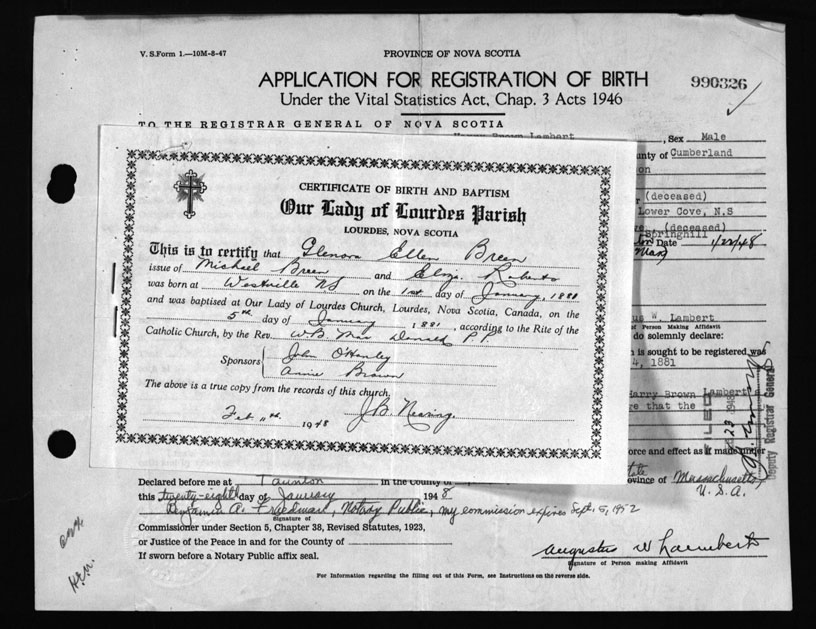 V. S. Form 1.—10M-8-47
PROVINCE OF NOVA SCOTIA
APPLICATION FOR REGISTRATION OF BIRTH
990326
Under the Vital Statistics Act, Chap. 3 Acts 1946
TO THE REGISTRAR GENERAL OF NOVA SCOTIA
Harry Brown Lambert, Sex Male
unty of Cumberland
on
(deceased)
Lower Cove, N.S
(deceased)
Springhill
Date 1/28/48
CERTIFICATE OF BIRTH AND BAPTISM
Our Lady of Lourdes Parish
LOURDES, NOVA SCOTIA
This is to certify that Glenora Ellen Breen
issue of Michael Breen and Eliza Roberts
was born at Westville NS on the 1st day of January, 1881
and was baptised at Our Lady of Lourdes Church, Lourdes, Nova Scotia, Canada, on the
5th day of January 1881, according to the Rite of the
Catholic Church, by the Rev. W B Mac Donald P.P.
Sponsors John O'Hanley
Annie Brown
The above is a true copy from the records of this church.
Feb 11th 1948 J.B. Nearing
us W. Lambert
of Person Making Affidavit
do solemnly declare:
h is sought to be registered was
4, 1881
Harry Brown Lambert
re that the
FILED
23 1948
Deputy Registrar General
orce and effect as if made under
Declared before me at Taunton in the County of
State
vince of Massachusetts
U.S.A.
this twenty-eighth day of January 1948
Benjamin A. Friedman, Notary Public, my commission expires Sept. 5, 1952
Signature of
Commissioner under Section 5, Chapter 38, Revised Statutes, 1923,
or Justice of the Peace in and for the County of
If sworn before a Notary Public affix seal.
Augustus W Lambert
Signature of Person making Affidavit
For Information regarding the filling out of this Form, see Instructions on the reverse side.